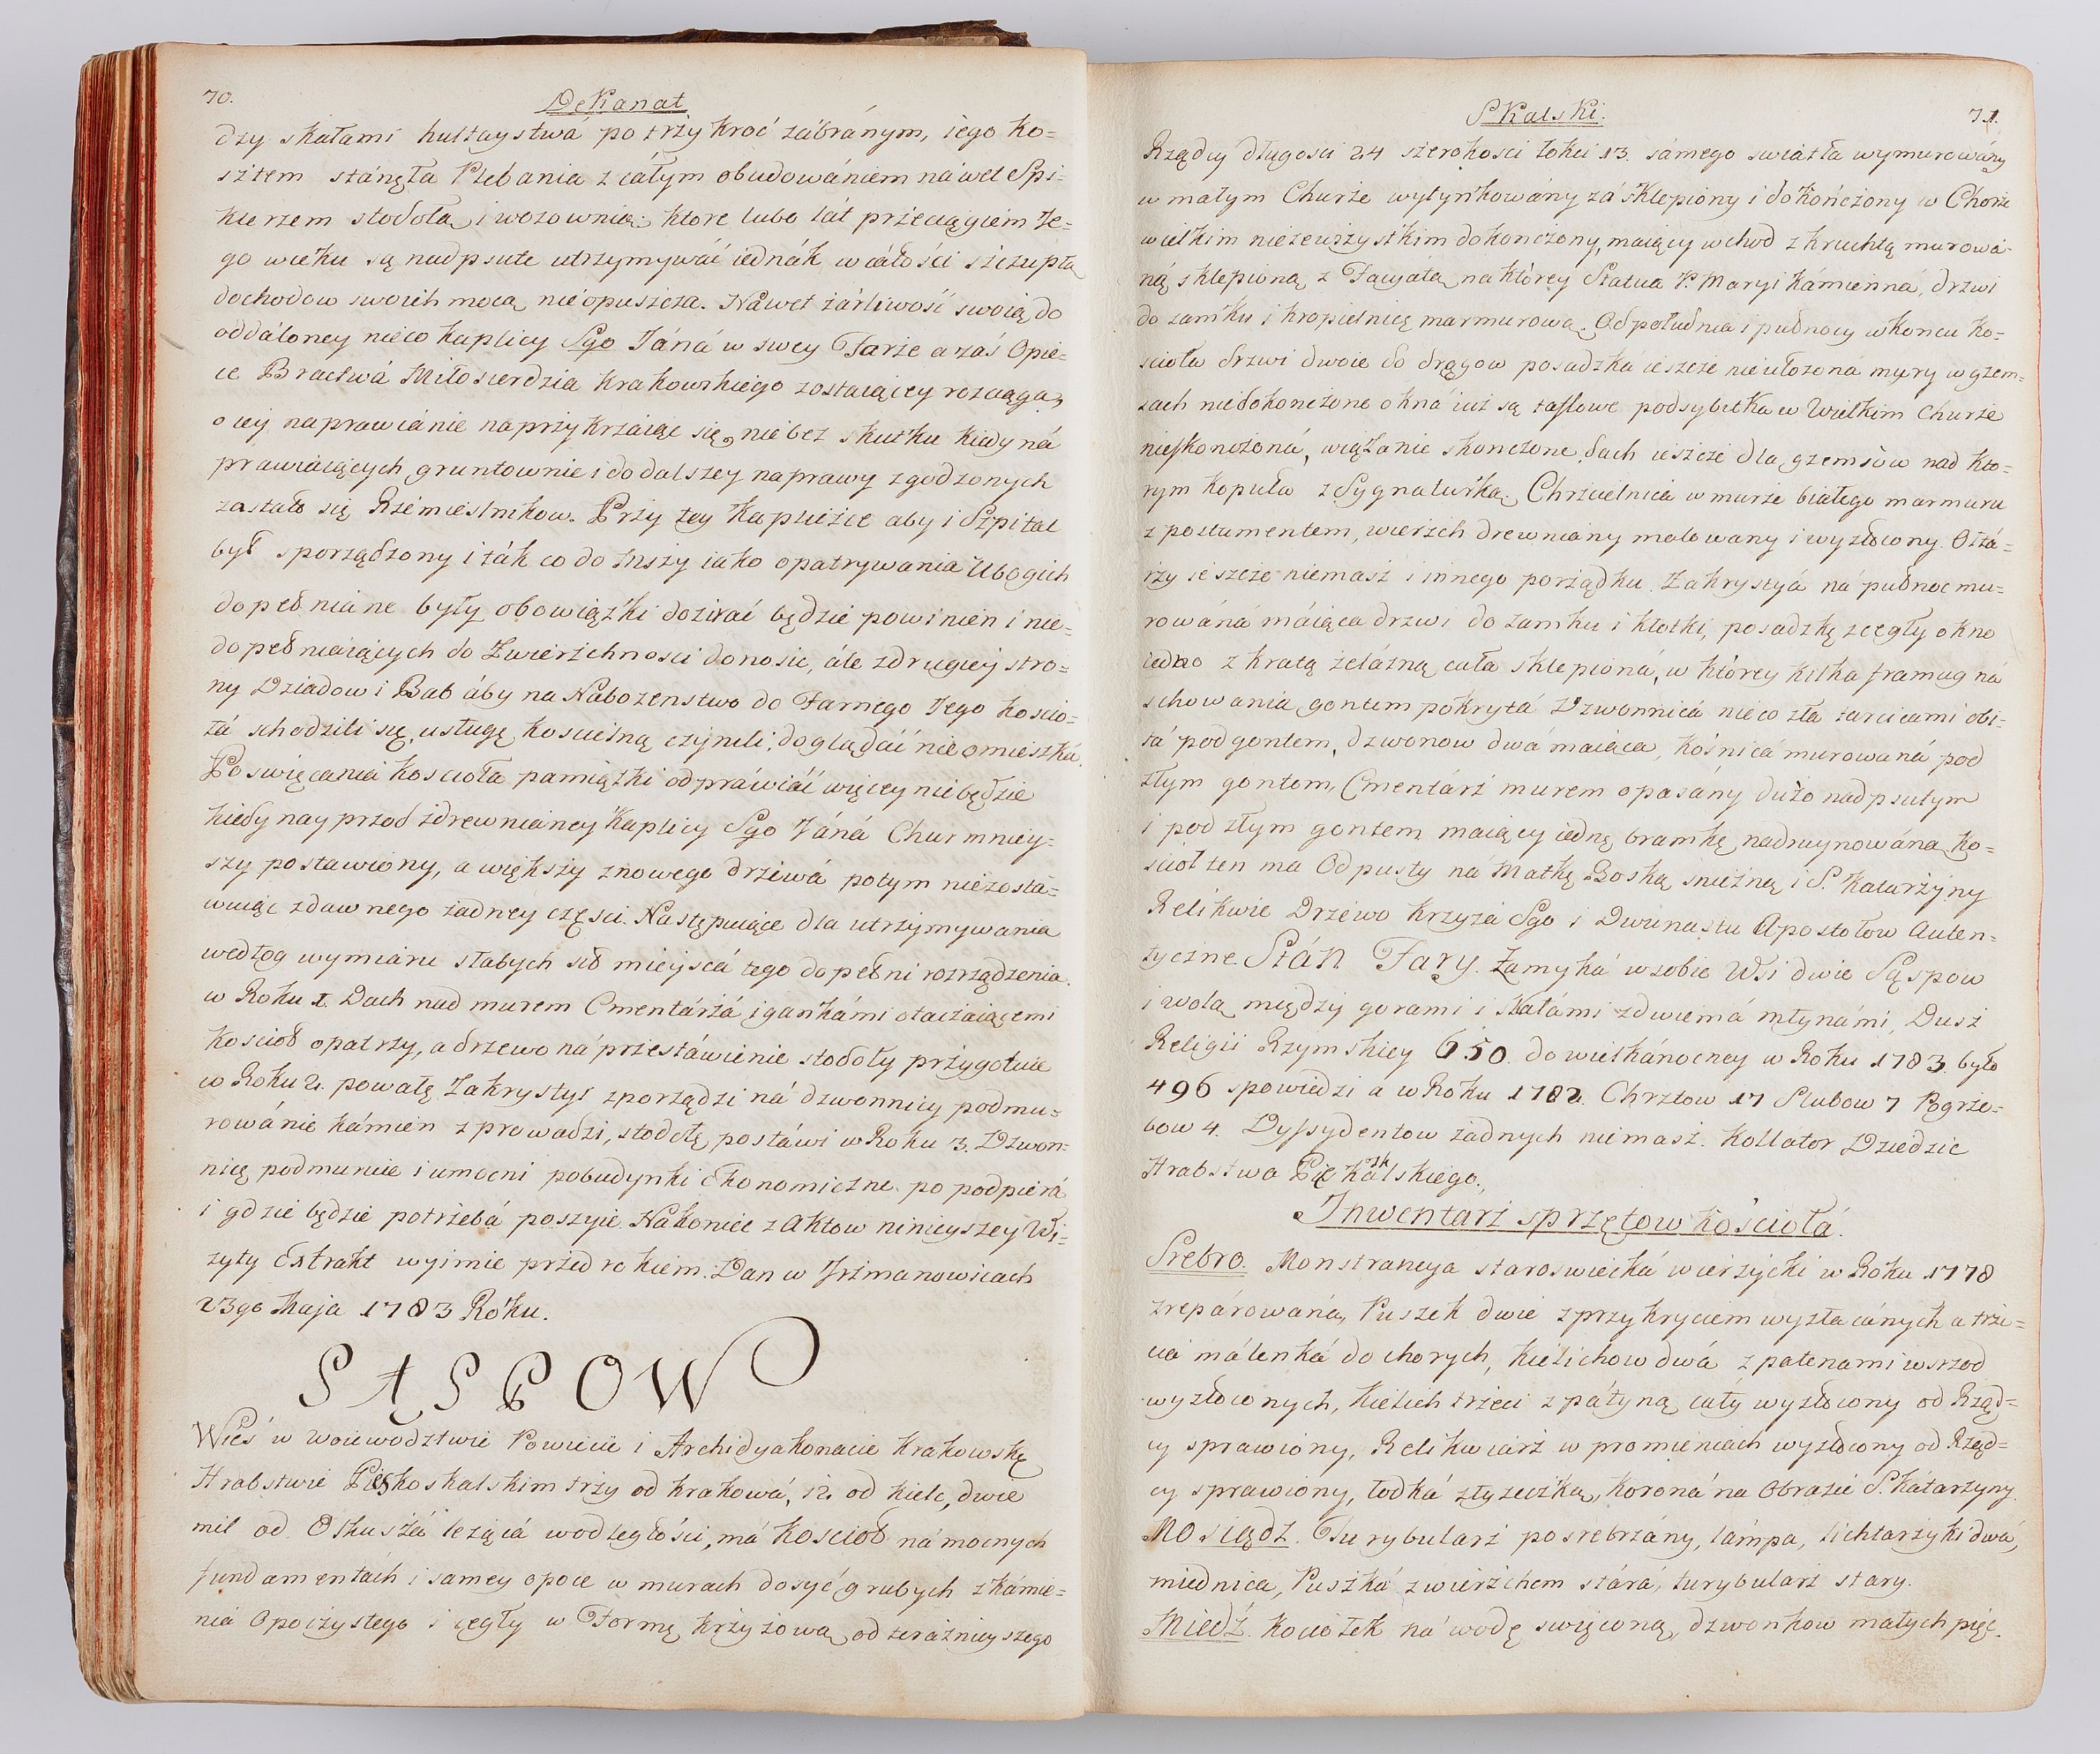 70.
Dekanat
dzy skałami hultaystwá po trzykroć zábránym, iego ko=
sztem stánęła Plebania z cáłym obudowániem náwet Spi=
klerzem stodołą i wozownią: ktore lubo lát przeciągiem Je=
go wieku są nadpsute utrzymywáć iednák wcáłości szczupłą
dochodow swoich mocą nieopuszcza. Náwet żárliwość swoią do
oddáloney nieco kaplicy Sgo Jáná w swey Farże a záś Opie=
ce Bractwá Miłosierdzia Krakowskiego zostaiącey rozciąga,
o iey naprawiánie naprzykrzaiąc się, nie bez skutku kiedy ná
prawiaiących gruntownie i do dalszey naprawy zgodzonych
zastało się Rzemieslnikow. Przy tey Kaplicżce aby i Szpital
był sporządzony i ták co do Duszy iako opatrywania Ubogich
dopełniane były obowiązki dozirać będzie powinien i nie=
dopełniaiących do Zwierżchnosci donosic, ále zdrugiey stro=
ny Dziadow i Bab áby na Nabozenstwo do Farnego Jego Kościo=
łá schodzili się, usługę kościelną czynili, doglądáć nieomieszká.
Poswięcania kościoła pamiątki odpráwiáć więcey niebędzie
kiedy nayprzod zdrewnianey Kaplicy Sgo Jáná Chur mniey=
szy postawiony, a większy znowego drzewá potym niezosta=
wuiąc zdawnego żadney części. Następuiące dla utrzymywania
według wymiaru słabych sił mieyscá tego dopełni rozrządzenia.
w Roku 1. Dach nad murem Cmentárżá i gankámi otaczaiącemi
Kościoł opatrzy, a drzewo ná przestáwienie stodoły przygotuie
w Roku 2. powałę Zakrystyi zporządzi ná dzwonnicy podmu=
rowánie kámien zprowadzi, stodołę postáwi w Roku 3. Dzwon=
nicę podmuruie i umocni pobudynki Ekonomiczne po podpierá
i gdzie będzie potrzebá poszyie. Nákoniec z Aktow ninieyszey Wi=
zyty Extrakt wyimie przed rokiem. Dan w Jrżmanowicach
23go Maja 1783 Roku.
SĄSPOW
Wieś w Woiewodztwie Powiecie i Archidyakonacie Krakowskę
Hrabstwie Pieskoskalskim trzy od Krakowá, 12. od Kielc, dwie
mil od Olkuszá leżącá wodległości, má Kościoł ná mocnych
fundamentách i samey opoce w murach dosyć grubych z kámie=
nia Opoczystego i cegły w Formę krzyżową od teraznieyszego
Skalski.
71.
Rządcy długosci 24 szerokosci łokci 13. sámego swiatła wymurowány
w małym Churże wytynkowány záSklepiony i dokończony w Chorże
wielkim niezewszystkim dokonczony, maiący wchod z kruchtą murowá=
ną sklepioną z Facyatą na ktorey Statua P. Maryi kámienná, drzwi
do zamku i kropielnicę marmurową. Od południa i pułnocy wkoncu Ko=
scioła drzwi dwoie do drągow posadzká ieszcze nieułożoná mury w gzem=
sach niedokonczone okná iuż są taflowe podsybitka w Wielkim Churże
nieskonczoná, wiązanie skonczone, dach ieszcze dla gzemsow nad kto=
rym kopuła z Sygnaturką. Chrzcielnica w murże białego marmuru
z postumentem, wierżch drewniany malowany i wyzłocony. Ołtá=
rży ieszcże niemasz i innego porządku. Zakrystyá ná pułnoc mu=
rowáná máiąca drzwi do zamku i kłotki, posadzkę zcegły okno
iedno z kratą żelázną cała sklepioná, w ktorey kilka framug na
schowania gontem pokrytá Dzwonnicá nieco zła tarcicami obi=
tá pod gontem, dzwonow dwá maiąca, kośnicá murowaná pod
złym gontem, Cmentárż murem opasány dużo nadpsutym
i pod złym gontem maiący iednę bramkę nadruynowáną Ko=
scioł ten ma Odpusty ná Matkę Boską snieżną i S. Katarżyny
Relikwie Drzewo Krzyżá Sgo i Dwunastu Apostołow Auten=
tyczne. Stán Fary. Zamyká wsobie Wsi dwie Sąspow
i Wolą między gorami i Skałámi zdwiemá młynámi, Dusz
Religii Rzymskiey 650. do wielkánocney w Roku 1783. było
496 spowiedzi a w Roku 1782. Chrztow 17 Slubow 7 Pogrże=
bow 4. Dyssydentow żadnych niemasz. Kollator Dziedzic
Hrabstwa Pięskalskiego.
Inwentarż sprzętow kościołá.
Srebro. Monstrancya staroswiecká wierżycki w Roku 1778
zrepárowáná, Puszek dwie z przykryciem wyzłacánych a trże=
cia málenká do chorych, kielichow dwá z patenami wsrzod
wyzłoconych, kielich trżeci z pátyną cáły wyzłocony od Rząd=
cy sprawiony, Relikwiarż w promieniach wyzłocony od Rząd=
cy sprawiony, łodká złyżeczką, koroná na Obrazie S. Kátarzyny
Mosiądz. Turybularż posrebrzány, lámpa, lichtarżyki dwá,
miednica, Puszká z wierżchem stárá, turybularż stary.
Miedź. Kociołek ná wodę swięconą, dzwonkow małych pięc.